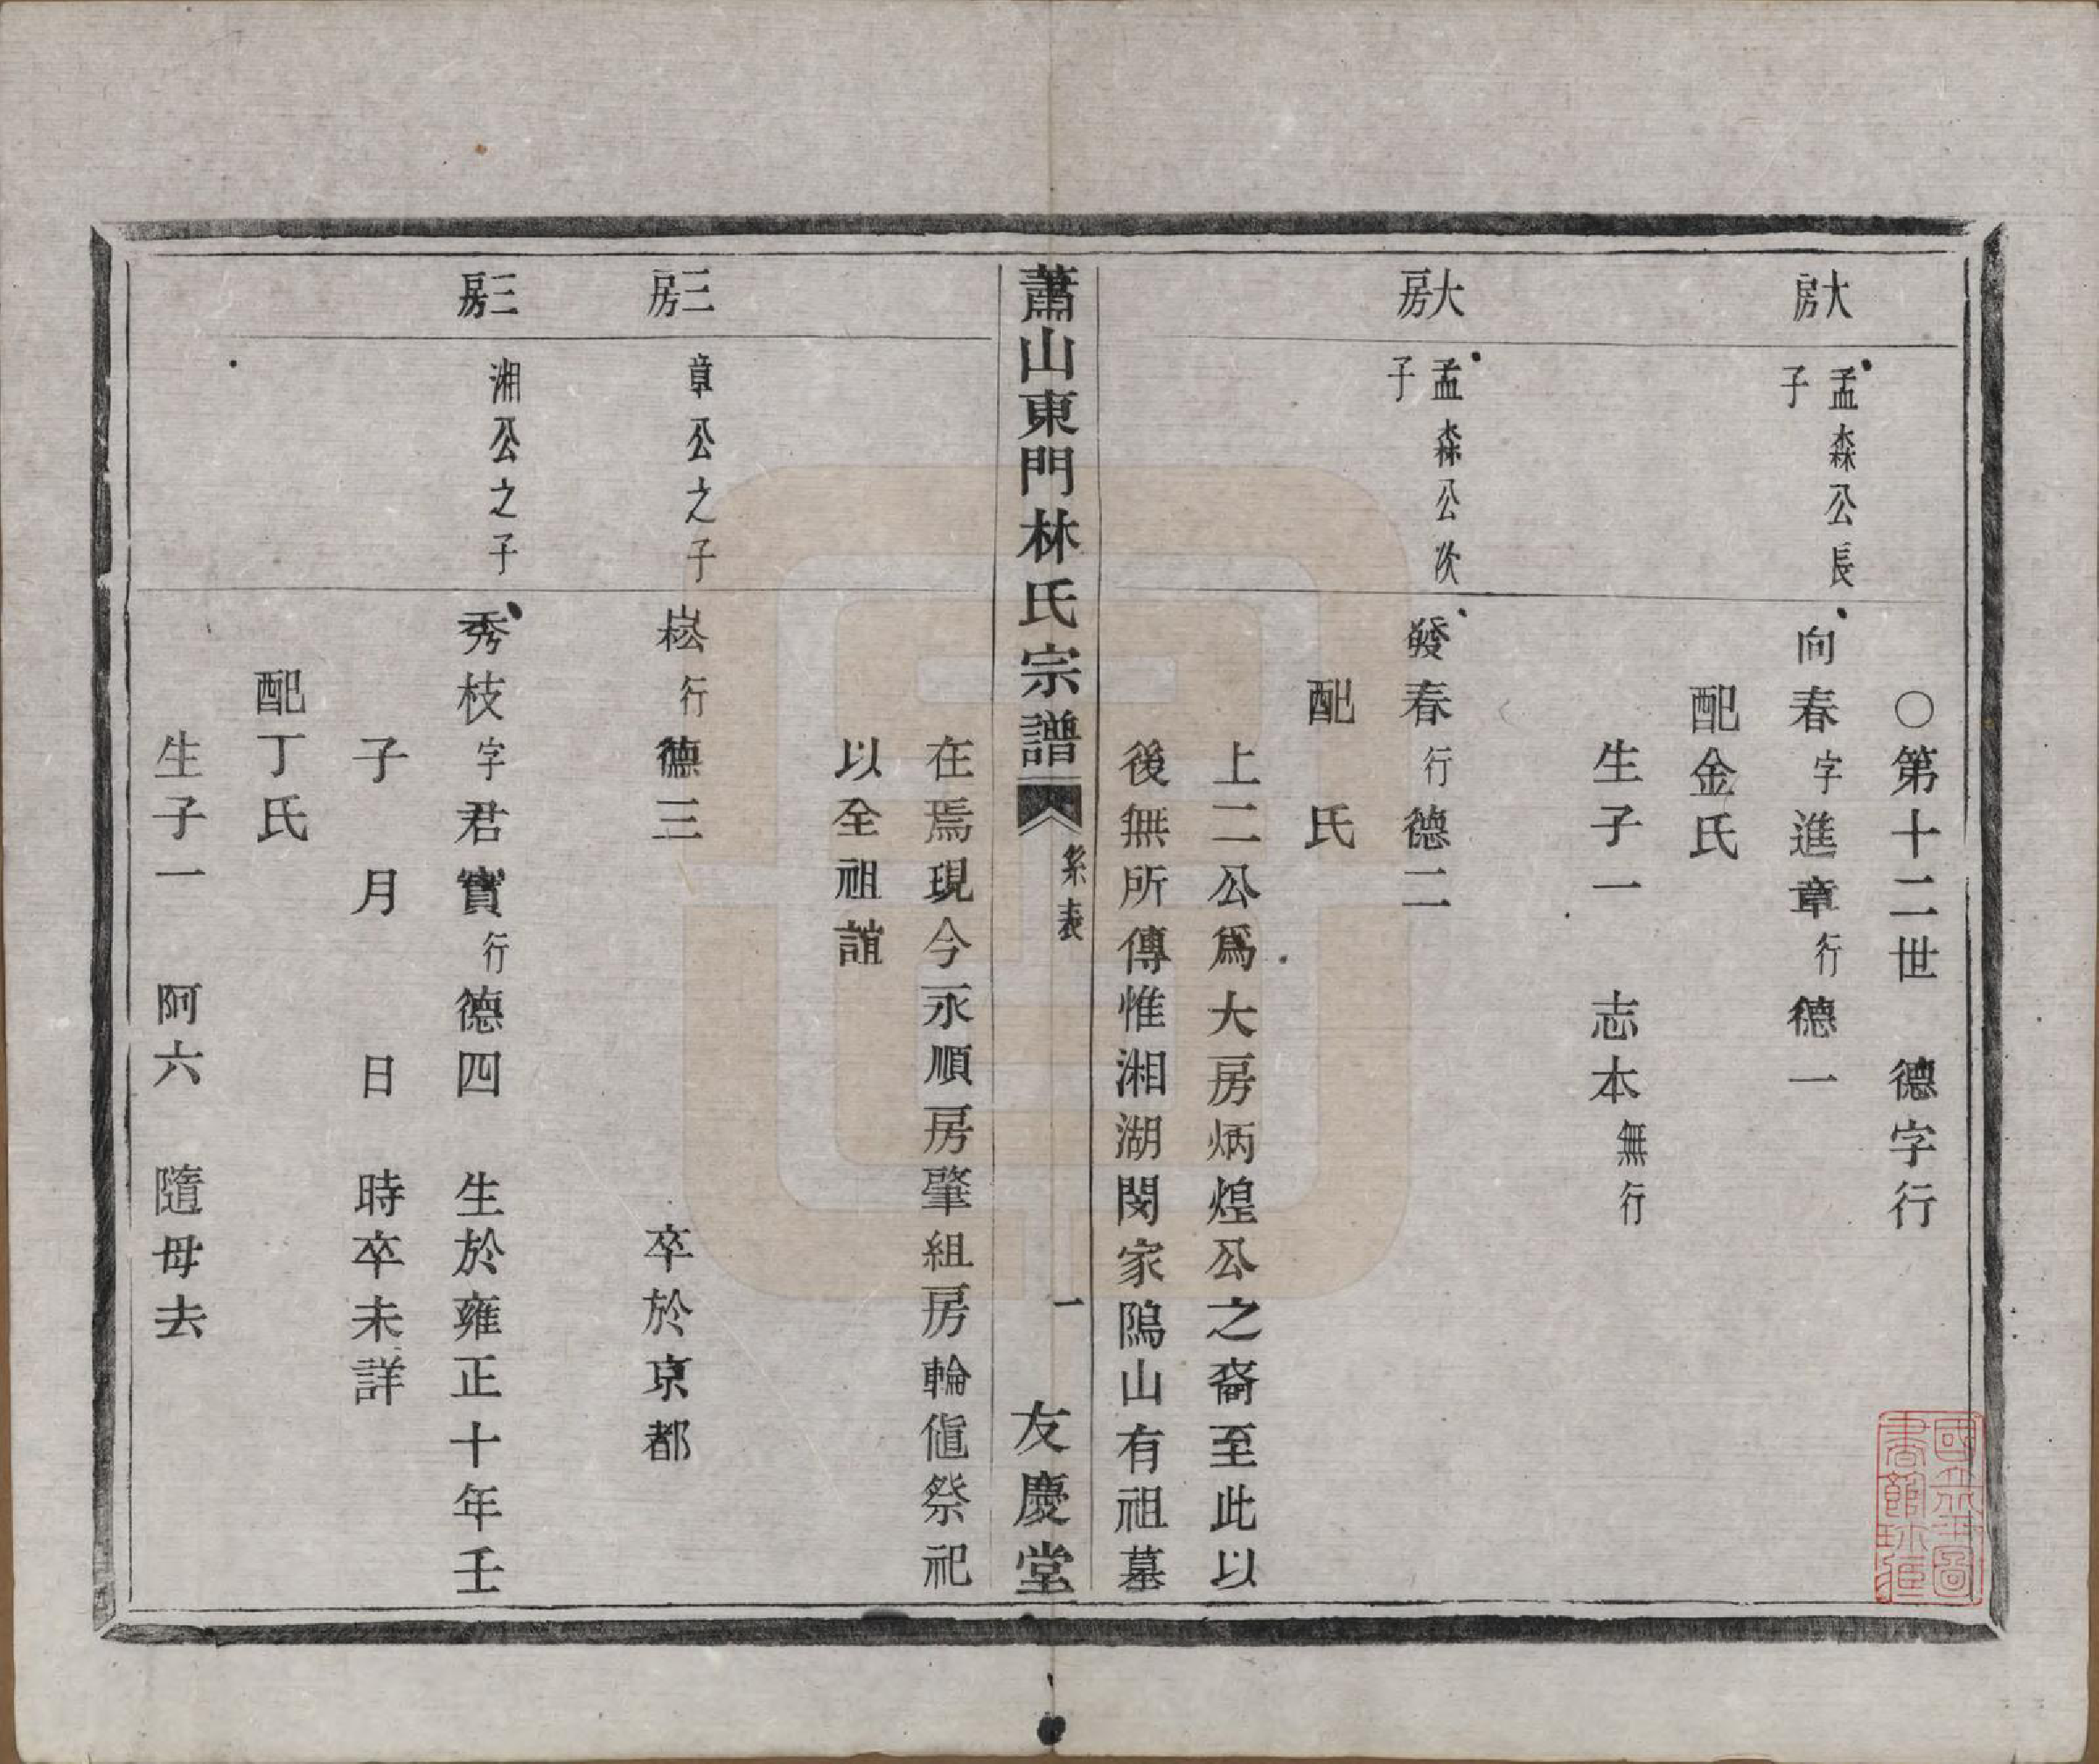 〇第十二世　德字行
大房
孟森公長子
向春字進章行德一
配金氏
生子一　志本無行
大房
孟森公次子
發春行德二
配　氏
上二公爲大房炳煌公之裔至此以
後無所傳惟湘湖閔家隝山有祖墓
蕭山東門林氏宗譜
系表
一
友慶堂
在焉現今永順房肇組房輪值祭祀
以全祖誼
三房
章公之子
崧行德三　卒於京都
三房
湘公之子
秀枝字君實行德四　生於雍正十年壬
子　月　日　時卒未詳
配丁氏
生子一　阿六　隨母去